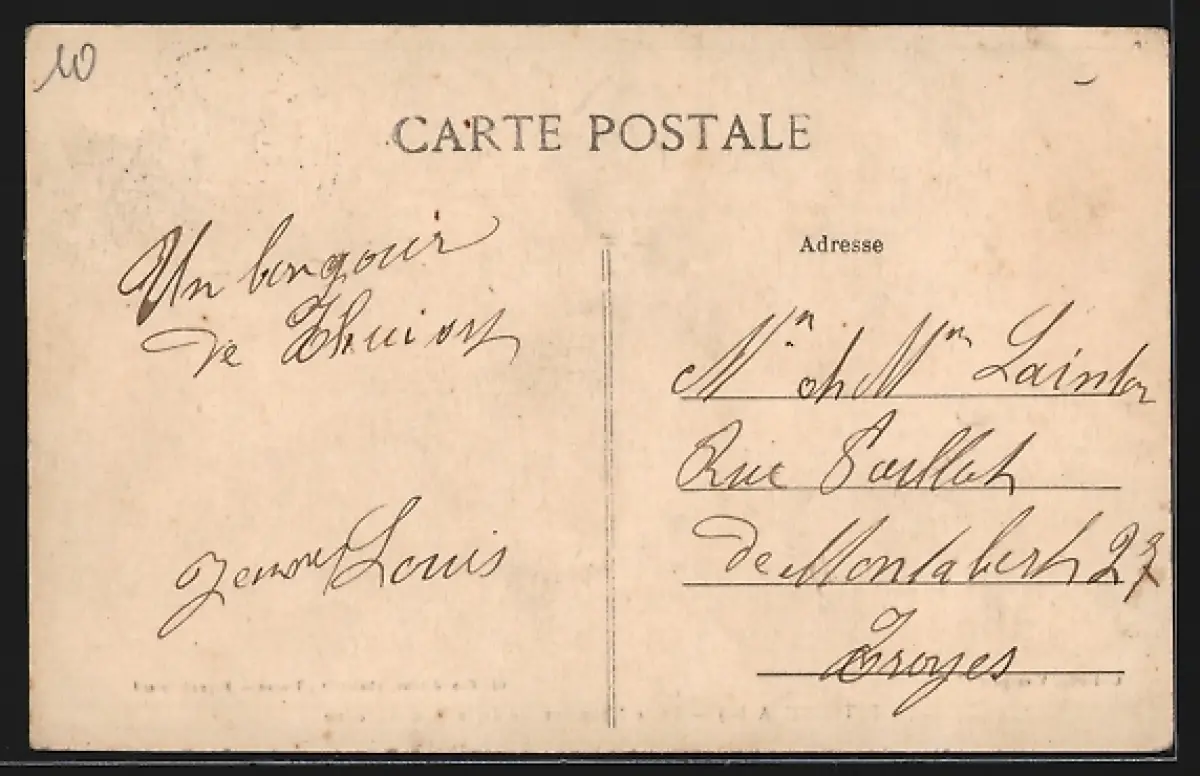 10
CARTE POSTALE
Un bongour
de Thuisy
Louis
Adresse
Mr et Mm
Rue Paillot
de Montabert 27
Troyes